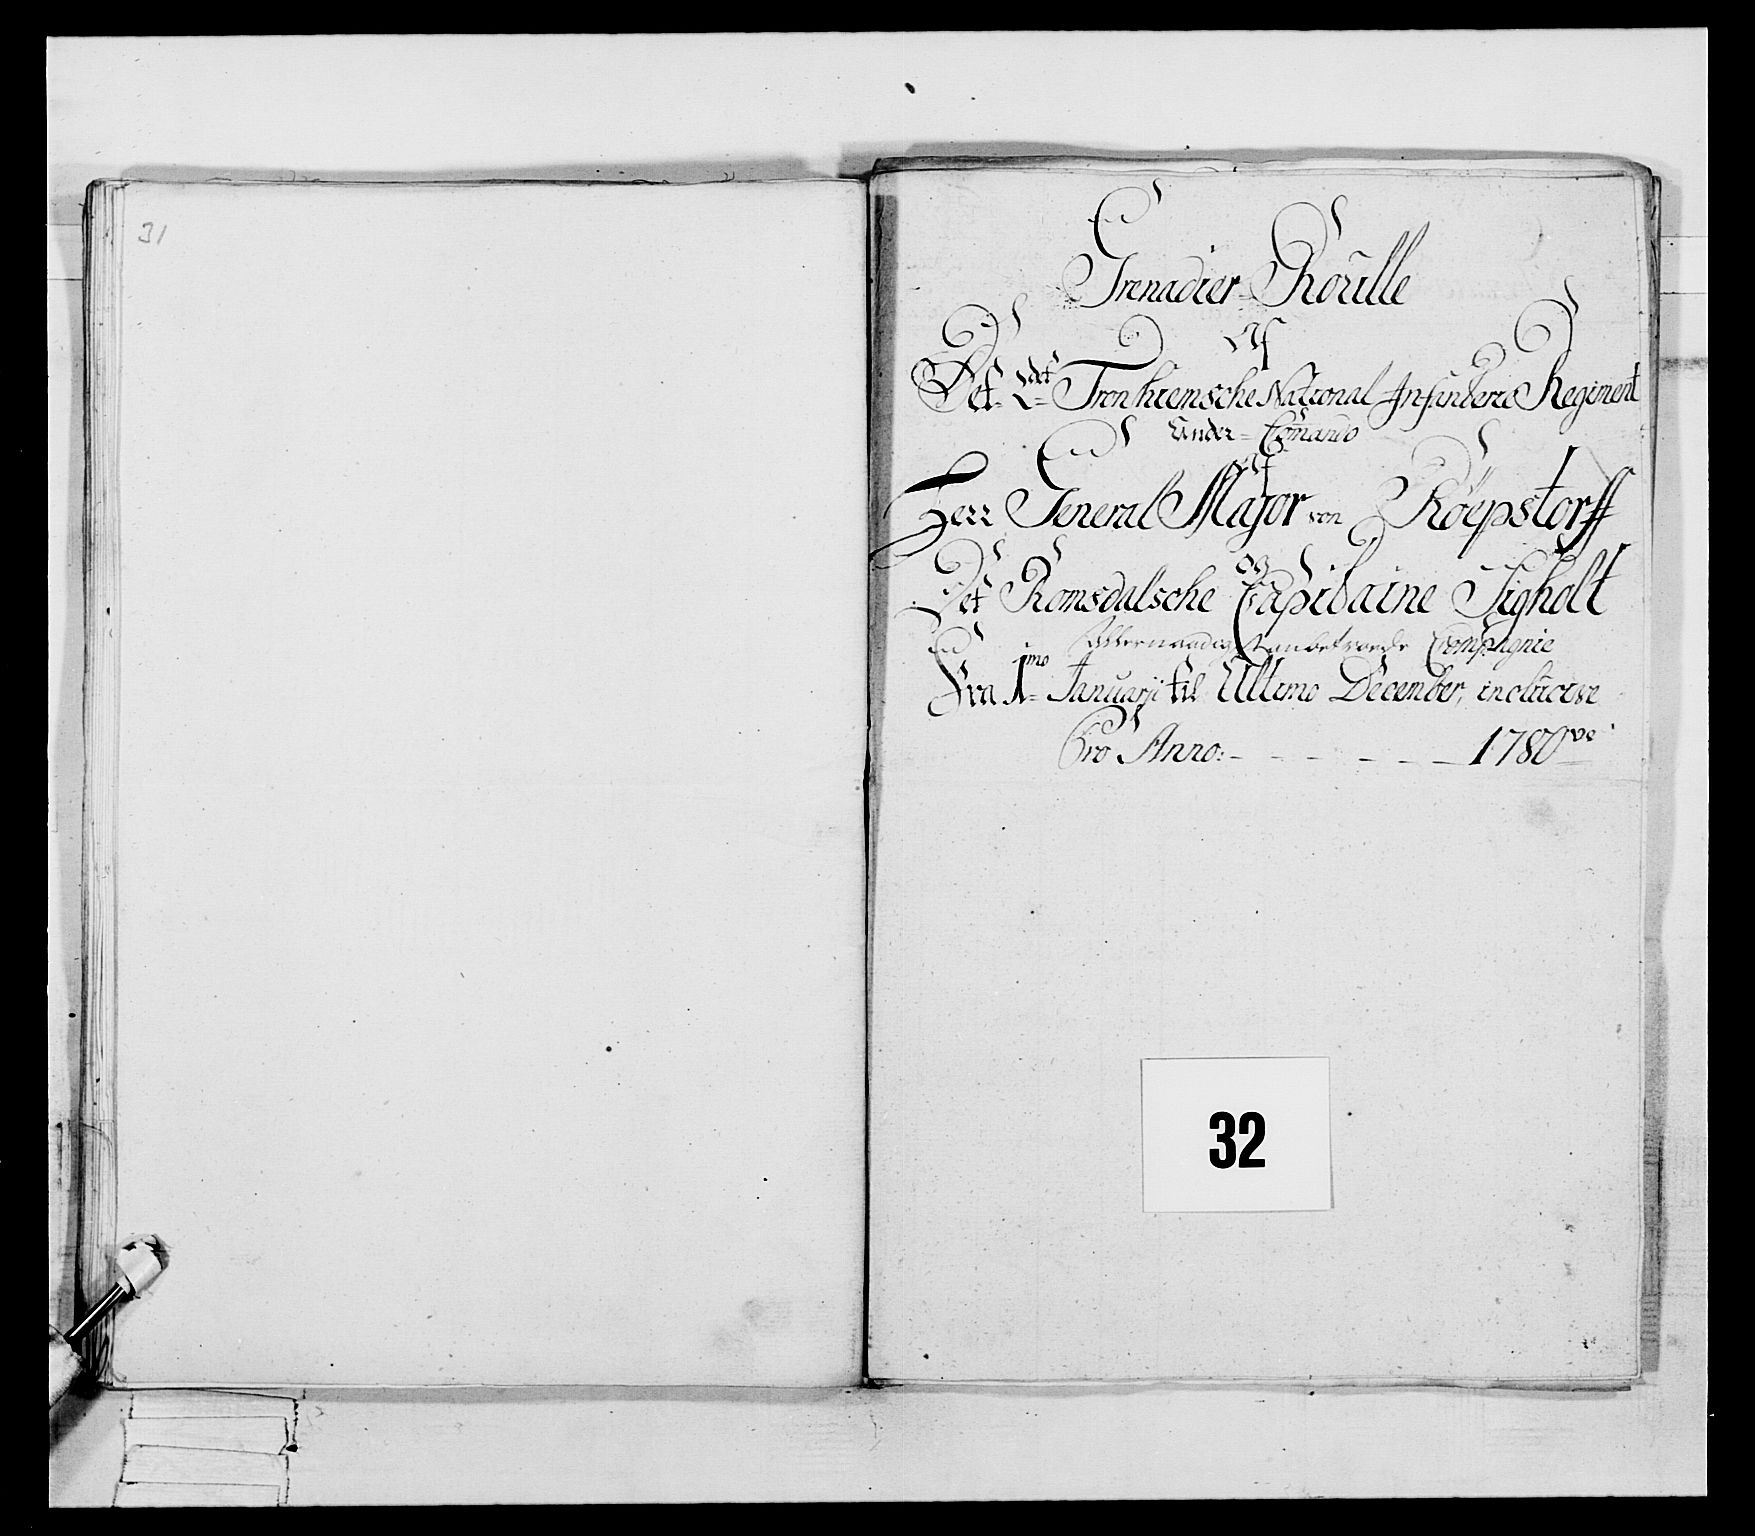 31
Grenadier Roulle
Af
Det 2det Tronhiemsche National Infanterie Regiment
Under Comando
Af
Herr General Major von Röepstorff
og
Det Romsdalsche Capitaine Sigholt
Allernaadigst anbetroede Compagnie
Fra 1mo Januarji til Ultimo December, inclusive
Pro Anno: - - - - - - 1780ve
32